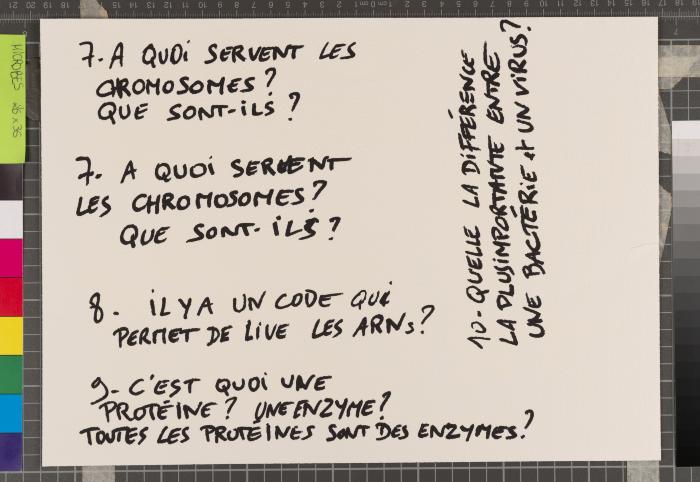 7. A QUOI SERVENT LES
CHROMOSOMES ?
QUE SONT-ILS ?
7. A QUOI SERVENT
LES CHROMOSOMES ?
QUE SONT-ILS ?
8. IL Y A UN CODE QUI
PERMET DE LIVE LES ARNs ?
9- C'EST QUOI UNE
PROTÉINE ? UNE ENZYME ?
TOUTES LES PROTÉINES SONT DES ENZYMES ?
10- QUELLE LA DIFFÉRENCE
LA PLUS IMPORTANTE ENTRE
UNE BACTÉRIE et UN VIRUS ?
MICROBES